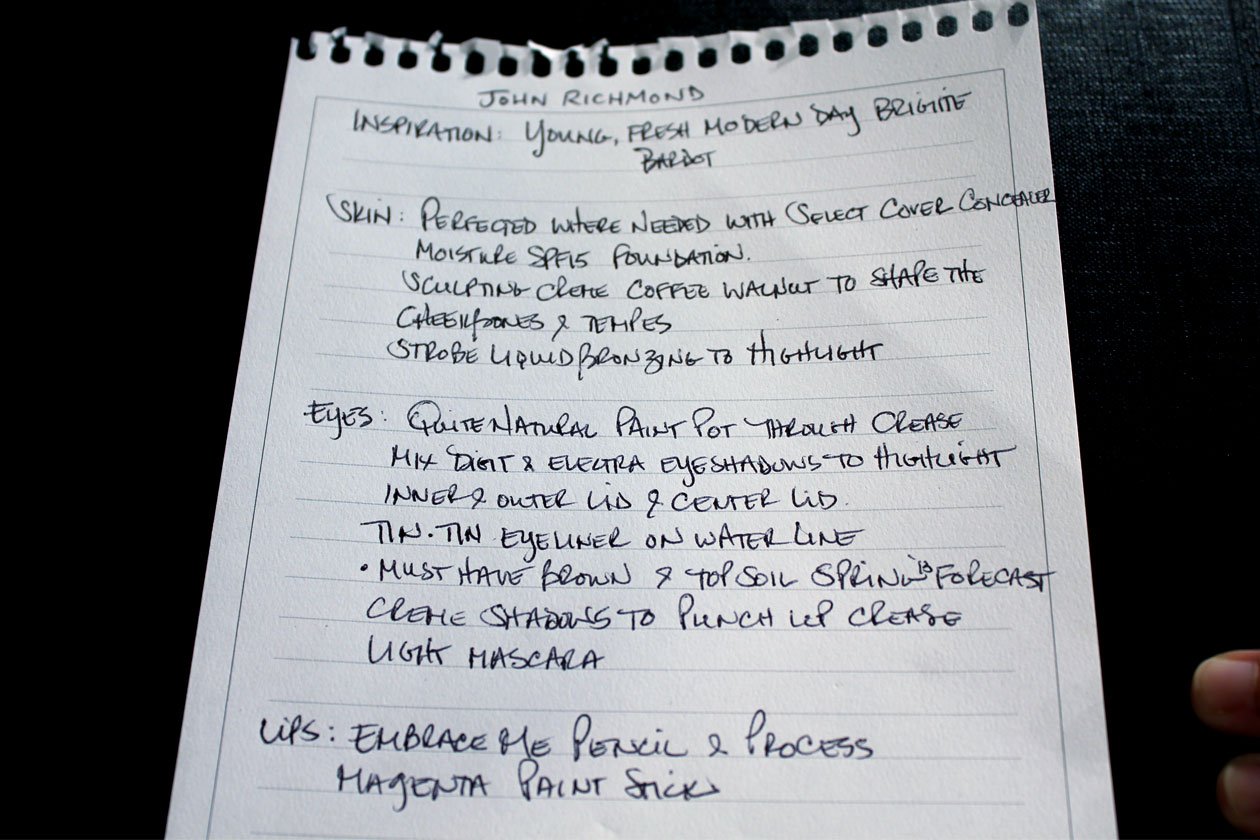 JOHN RICHMOND
INSPIRATION: YOUNG, FRESH MODERN DAY BRIGITTE
BARDOT
SKIN: PERFECTED WHERE NEEDED WITH SELECT COVER CONCEALER
MOISTURE SPF15 FOUNDATION.
SCULPTING CREME COFFEE WALNUT TO SHAPE THE
CHEEKBONES & TEMPES
STROBE LIQUID BRONZING TO HIGHLIGHT
EYES: QUITE NATURAL PAINT POT THROUGH CREASE
MIX DIGIT & ELECTRA EYESHADOWS TO HIGHLIGHT
INNER & OUTER LID & CENTER LID.
TIN·TIN EYELINER ON WATER LINE
• MUST HAVE BROWN & TOP SOIL SPRING 13 FORECAST
CREME SHADOWS TO PUNCH UP CREASE
LIGHT MASCARA
LIPS: EMBRACE ME PENCIL & PROCESS
MAGENTA PAINT STICK